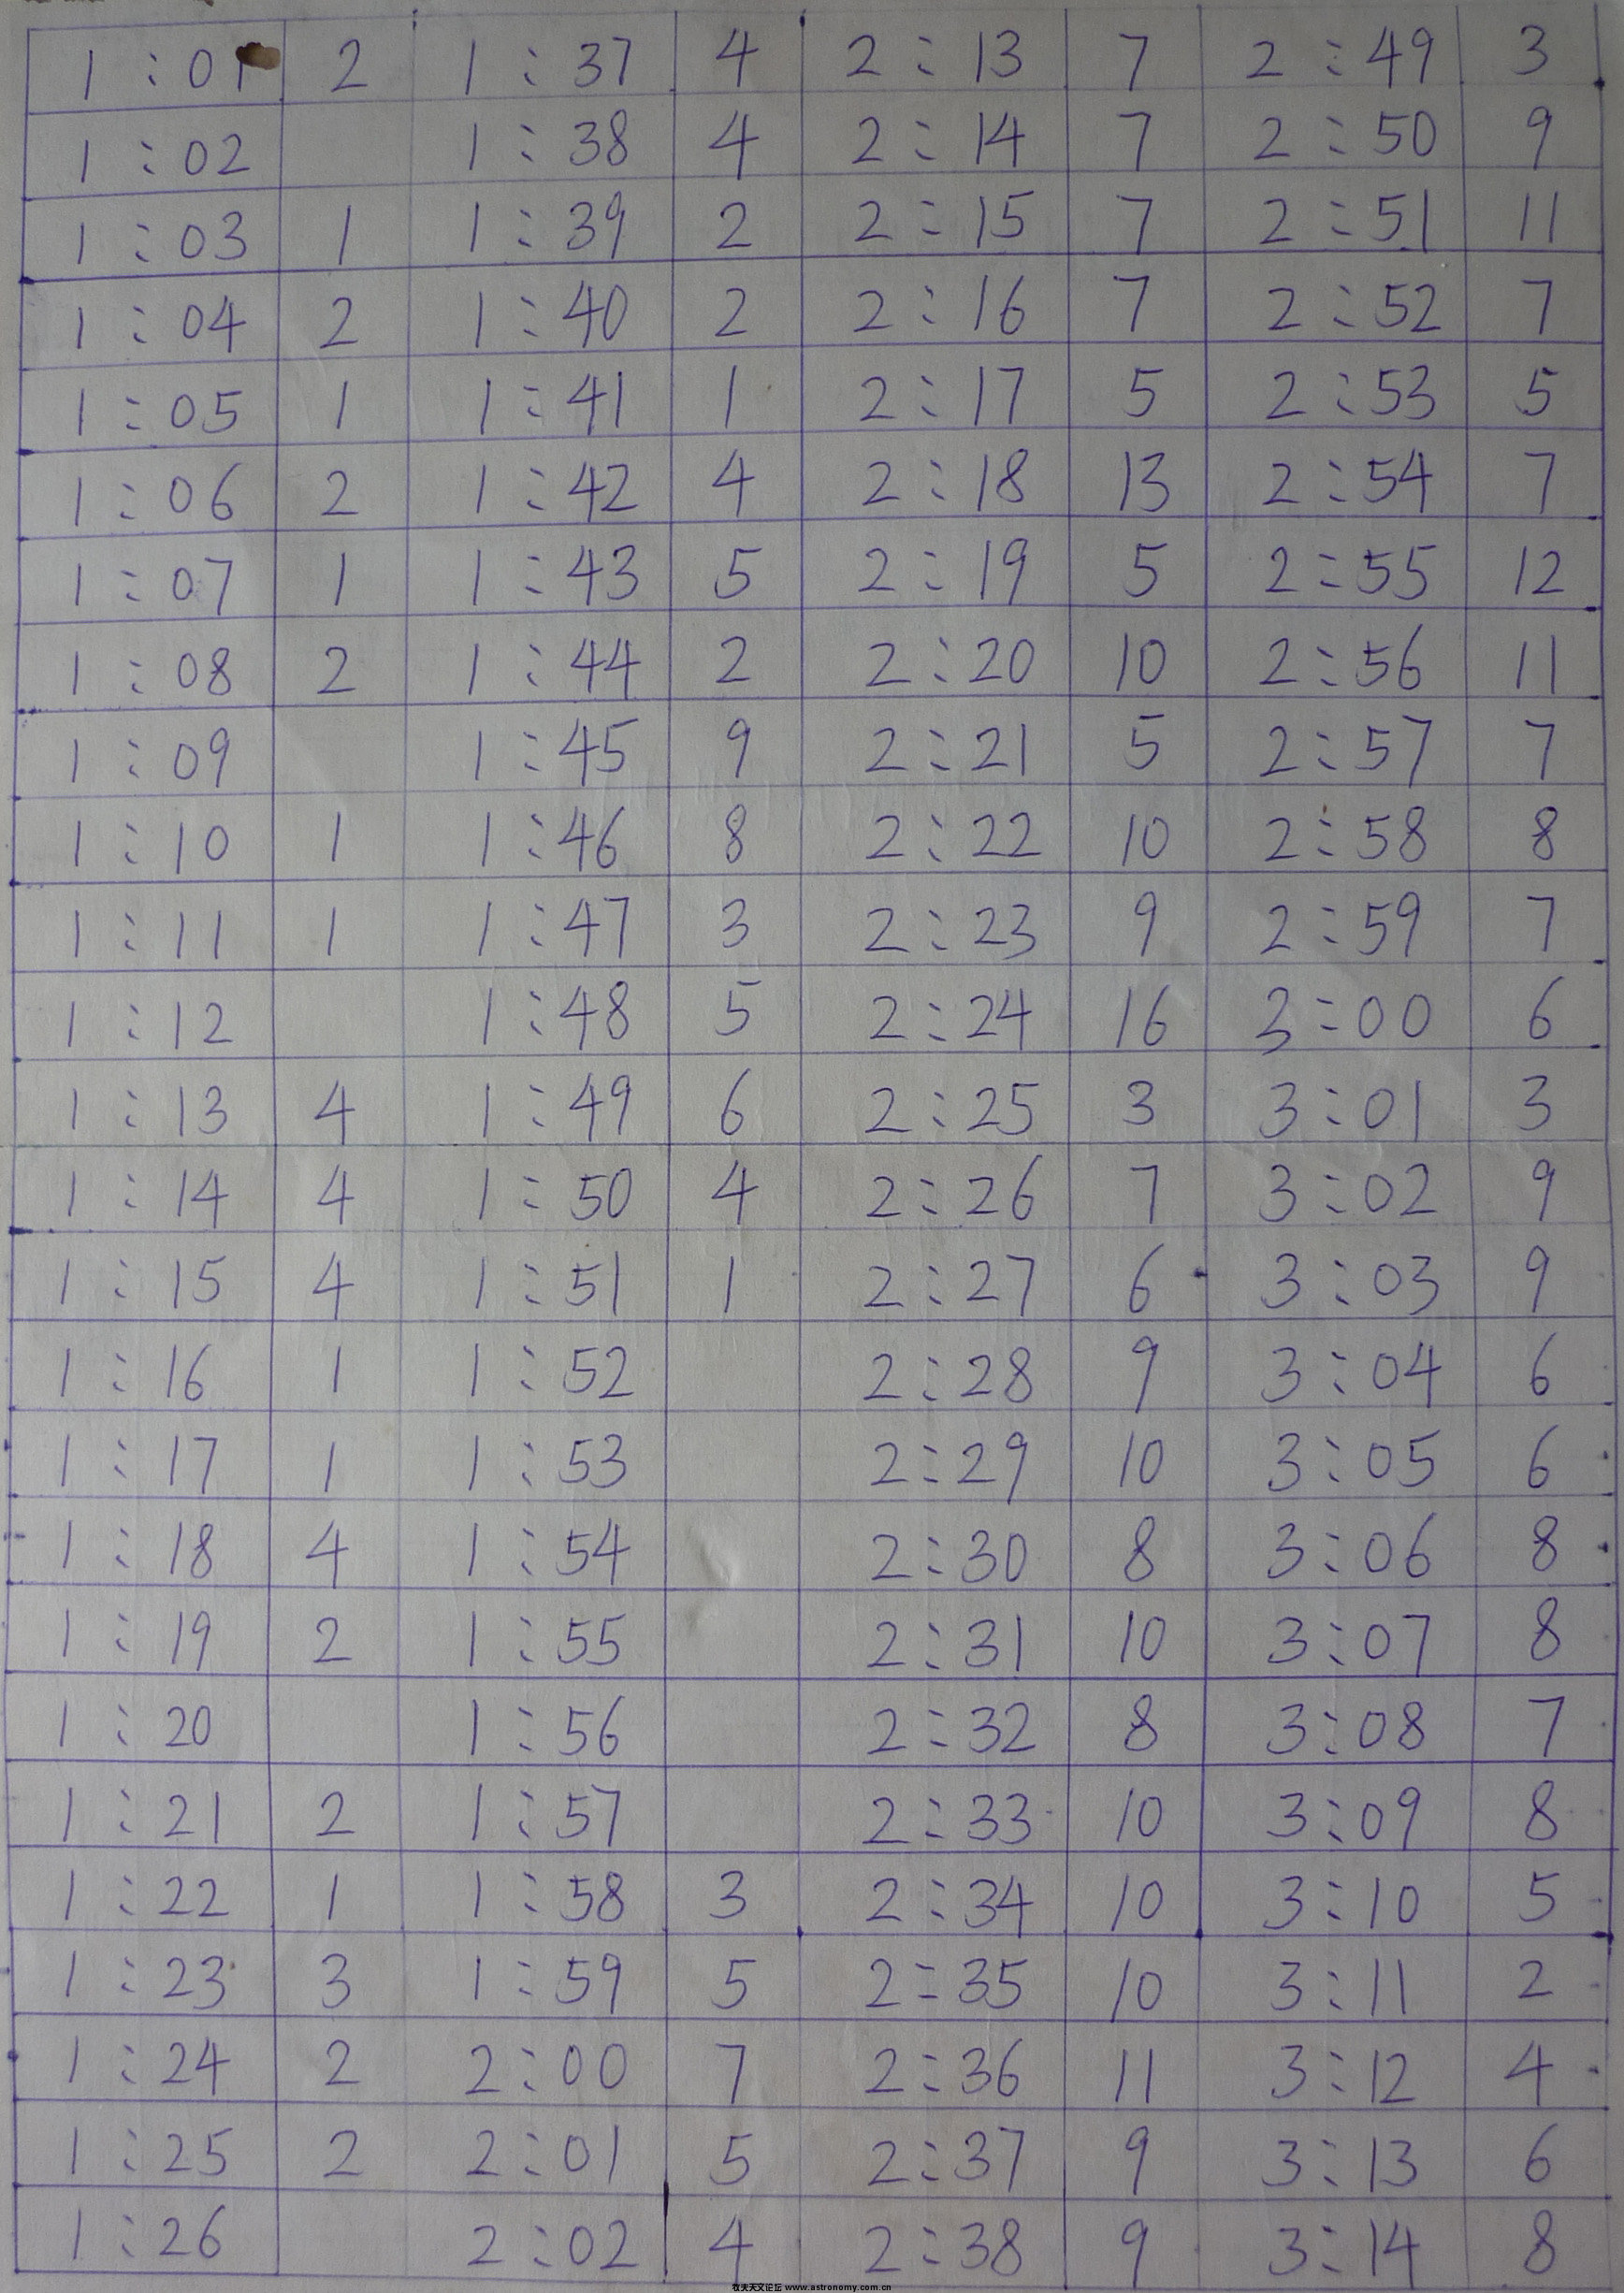 1:01 2 1:37 4 2:13 7 2:49 3
1:02 1:38 4 2:14 7 2:50 9
1:03 1 1:39 2 2:15 7 2:51 11
1:04 2 1:40 2 2:16 7 2:52 7
1:05 1 1:41 1 2:17 5 2:53 5
1:06 2 1:42 4 2:18 13 2:54 7
1:07 1 1:43 5 2:19 5 2:55 12
1:08 2 1:44 2 2:20 10 2:56 11
1:09 1:45 9 2:21 5 2:57 7
1:10 1 1:46 8 2:22 10 2:58 8
1:11 1 1:47 3 2:23 9 2:59 7
1:12 1:48 5 2:24 16 3:00 6
1:13 4 1:49 6 2:25 3 3:01 3
1:14 4 1:50 4 2:26 7 3:02 9
1:15 4 1:51 1 2:27 6 3:03 9
1:16 1 1:52 2:28 9 3:04 6
1:17 1 1:53 2:29 10 3:05 6
1:18 4 1:54 2:30 8 3:06 8
1:19 2 1:55 2:31 10 3:07 8
1:20 1:56 2:32 8 3:08 7
1:21 2 1:57 2:33 10 3:09 8
1:22 1 1:58 3 2:34 10 3:10 5
1:23 3 1:59 5 2:35 10 3:11 2
1:24 2 2:00 7 2:36 11 3:12 4
1:25 2 2:01 5 2:37 9 3:13 6
1:26 2:02 4 2:38 9 3:14 8
牧夫天文论坛 www.astronomy.com.cn